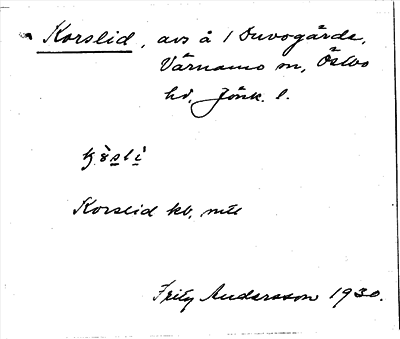 Korslid, avs å 1 Duvogårde,
Värnamo sn, Östbo
hd, Jönk. l.
Korslid kb, mtl
Fritz Andersson 1930.